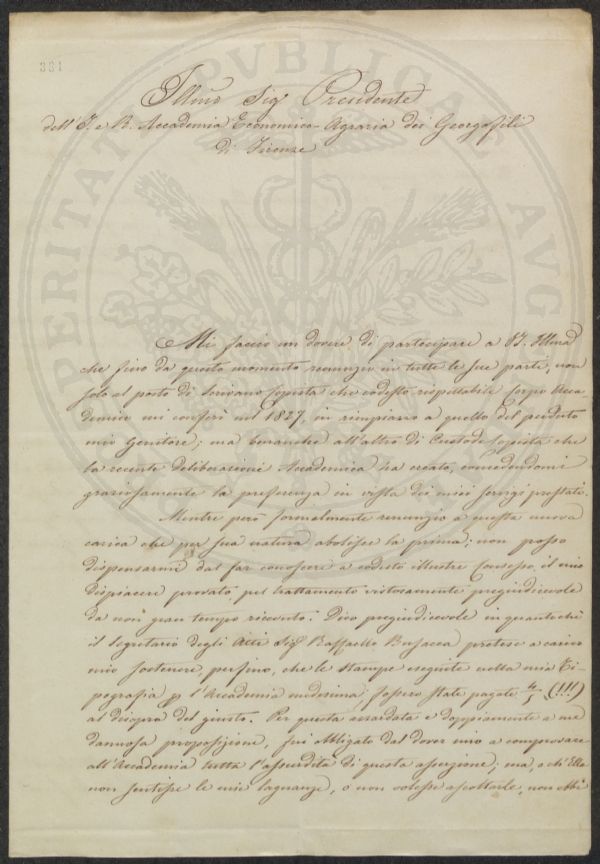 331
Illmo Sigr Presidente
dell' I. e R. Accademia Economico-Agraria dei Georgofili
di Firenze
Mi faccio un dovere di partecipare a VS. Illma
che fino da questo momento renunzio in tutte le sue parti, non
solo al posto di Scrivano Copista che codesto rispettabile Corpo Acca
demico mi conferì nel 1827, in rimpiazzo a quello del perduto
mio Genitore; ma benanche all'altro di Custode Copista che
la recente deliberazione Accademica ha creato, concedendomi
graziosamente la preferenza in vista dei miei servigj prestati.
Mentre però formalmente renunzio a questa nuova
carica che per sua natura abolisce la prima; non posso
dispensarmi dal far conoscere a codesto illustre Consesso, il mio
dispiacere provato, pel trattamento vistosamente pregiudicevole
da non gran tempo ricevuto. Dico pregiudicevole in quantochè
il Segretario degli Atti Sigr Raffaello Busacca pretese a carico
mio sostenere, perfino, che le stampe eseguite nella mia Ti-
pografia p l'Accademia medesima, fossero state pagate 4/5 (!!!)
al disopra del giusto. Per questa assardata e doppiamente a me
dannosa proposizione, fui obbligato dal dover mio a comprovare
all'Accademia tutta l'assurdità di questa asserzione; ma, o ch'Ella
non sentisse le mie lagnanze, o non volesse ascoltarle, non ebbi
PERITATI PVBLICAE AVG